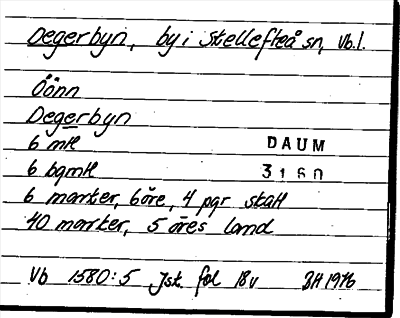 Degerbyn, by i Skellefteå sn, Vb.l.
Öönn
Degerbyn
6 mH DAUM
6 bgmH 3160
6 marker, 6 öre, 4 pgr skatt
40 marker, 5 öres land
Vb 1580:5 Jst. fol 18v BH 1976